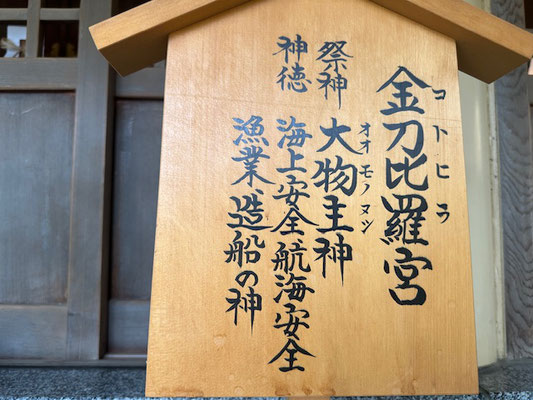 金刀比羅宮
コトヒラ
祭神 大物主神
オオモノヌシ
神徳 海上安全航海安全
漁業、造船の神